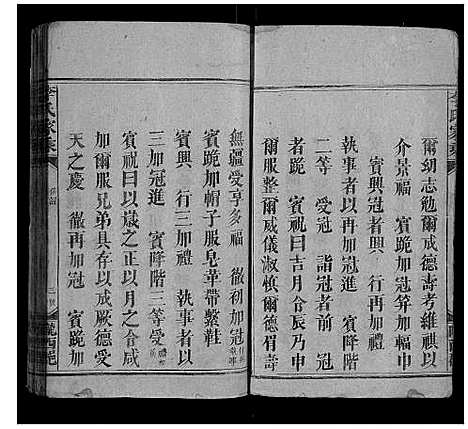 爾幼志勉爾成德壽考維祺以
介景福　賓跪加冠筭加巾
賓興冠者興　行再加禮
執事者以再加冠進　賓降階
二等　受冠　詣冠者前　冠
者跪　賓祝曰吉月令辰乃申
爾服整爾威儀淑愼爾德眉壽
無疆受享多福　徹初加冠
賓跪加帽子服皂革帶繫鞋
賓興　行三加禮　執事者以
三加冠進　賓降階三等受
賓祝曰以歲之正以月之令咸
加爾服兄弟具存以成厥德受
天之慶　徹再加冠　賓跪加
李氏家乘
隴西邑